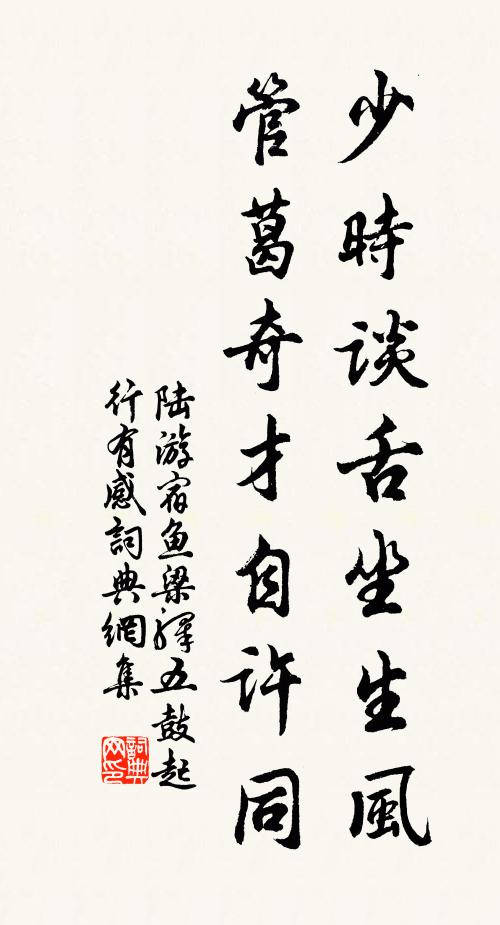 少時談舌坐生風
管葛奇才自許同
陆游宿鱼梁驛五鼓起
行有感詞典網集
詞典
网印